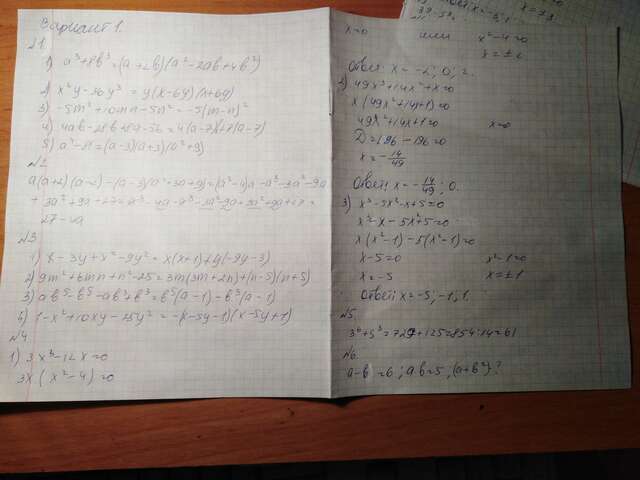 Вариант 1.
№1.
1) a³+8b³=(a+2b)(a²-2ab+4b²)
2) x²y-36y³=y(x-6y)(x+6y)
3) -5m²+10mn-5n²=-5(m-n)²
4) 4ab-28b+8a-56=4(a-7)b+7(a-7)
5) a⁴-81=(a-3)(a+3)(a²+9)
№2
a(a+2)(a-2)-(a-3)(a²+3a+9)=(a²-4)a-a³-3a²-9a
+3a²+9a+27=a³-4a-a³-3a²-9a+3a²+9a+27=
27-4a
№3
1) x-3y+x²-9y²=x(x+1)+y(-9y-3)
2) 9m²+6mn+n²-25=3m(3m+2n)+(n-5)(n+5)
3) ab⁵-b⁵-ab³+b³=b⁵(a-1)-b³(a-1)
4) 1-x²+10xy-25y²=-(x-5y-1)(x-5y+1)
№4
1) 3x³-12x=0
3x(x²-4)=0
x=0 или x²-4=0
x=±2
Ответ: x=-2; 0; 2.
2) 49x³+14x²+x=0
x(49x²+14x+1)=0
49x²+14x+1=0 x=0
D=196-196=0
x=-14/49
Ответ: x=-14/49; 0.
3) x³-5x²-x+5=0
x³-x-5x²+5=0
x(x²-1)-5(x²-1)=0
x-5=0 x²-1=0
x=-5 x=±1
Ответ: x=-5; -1; 1.
№5.
3⁶+5³=729+125=854:14=61
№6.
a-b=6; ab=5; (a+b²)?